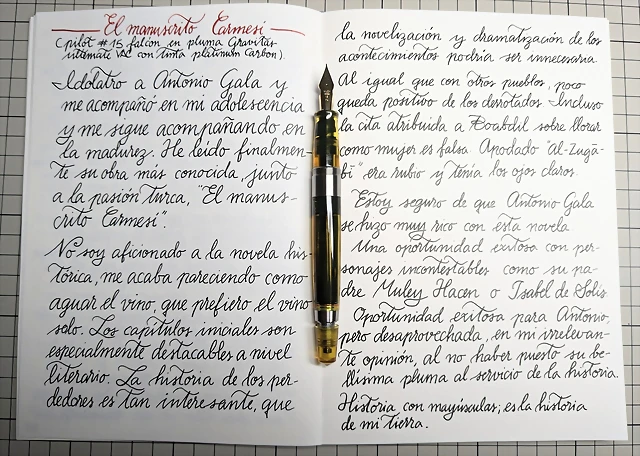 El manuscrito Carmesí
(pilot #15 falcon en pluma Gravitas
ultemate VAC con tinta platinum Carbon).
Idolatro a Antonio Gala y
me acompañó en mi adolescencia
y me sigue acompañando en
la madurez. He leído finalmen-
te su obra más conocida, junto
a la pasión turca, "El manus-
crito Carmesí".
No soy aficionado a la novela his-
tórica, me acaba pareciendo como
aguar el vino, que prefiero el vino
solo. Los capítulos iniciales son
especialmente destacables a nivel
literario. La historia de los per-
dedores es tan interesante, que
la novelización y dramatización de los
acontecimientos podría ser innecesaria
Al igual que con otros pueblos, poco
queda positivo de los derrotados. Incluso
la cita atribuida a Boabdil sobre llorar
como mujer es falsa. Apodado "al-Zugā-
bī" era rubio y tenía los ojos claros.
Estoy seguro de que Antonio Gala
se hizo muy rico con esta novela
Una oportunidad exitosa con per-
sonajes incontestables como su pa-
dre Muley Hacen o Isabel de Solís.
Oportunidad exitosa para Antonio,
pero desaprovechada, en mi irrelevan-
te opinión, al no haber puesto su be-
llísima pluma al servicio de la historia.
Historia con mayúsculas; es la historia
de mi tierra.